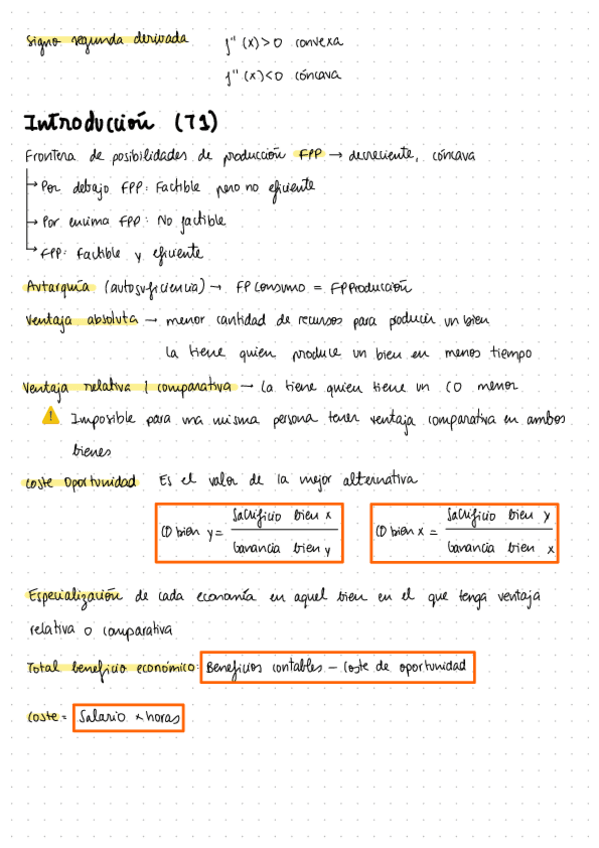 Signo segunda derivada f''(x)>0 convexa
f''(x)<0 cóncava
Introducción (T1)
Frontera de posibilidades de producción FPP → decreciente, cóncava
→ Por debajo FPP: Factible pero no eficiente
→ Por encima FPP: No factible
→ FPP: Factible y eficiente
Autarquía (autosuficiencia) → FP Consumo = FP Producción
Ventaja absoluta → menor cantidad de recursos para producir un bien
La tiene quien produce un bien en menos tiempo
Ventaja relativa / comparativa → La tiene quien tiene un CO menor
⚠ Imposible para una misma persona tener ventaja comparativa en ambos
bienes
Coste Oportunidad Es el valor de la mejor alternativa
CO bien y = Sacrificio bien x / Ganancia bien y CO bien x = Sacrificio bien y / Ganancia bien x
Especialización de cada economía en aquel bien en el que tenga ventaja
relativa o comparativa
Total beneficio económico: Beneficios contables – Coste de oportunidad
Coste = Salario × horas